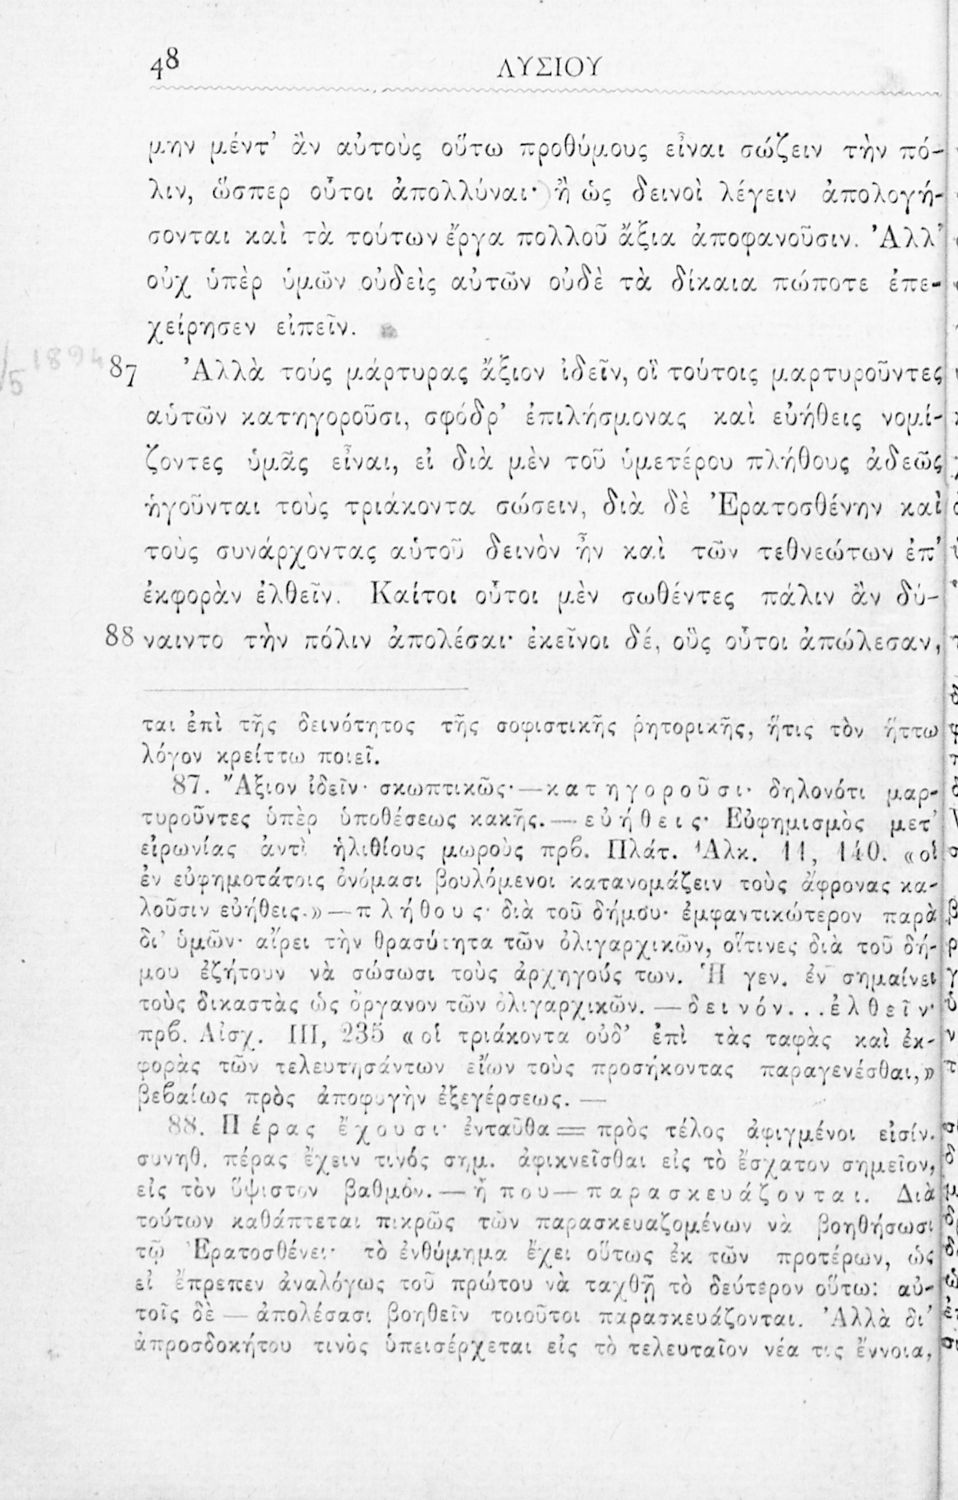 48
ΛΥΣΙΟΥ
μην μέντ’ ἂν αὐτοὺς οὕτω προθύμους εἶναι σώζειν τὴν πό-
λιν, ὥσπερ οὗτοι ἀπολλύναι· ἢ ὡς δεινοὶ λέγειν ἀπολογή-
σονται καὶ τὰ τούτων ἔργα πολλοῦ ἄξια ἀποφανοῦσιν. Ἀλλ’
οὐχ ὑπὲρ ὑμῶν οὐδεὶς αὐτῶν οὐδὲ τὰ δίκαια πώποτε ἐπε-
χείρησεν εἰπεῖν.
5 1894
87 Ἀλλὰ τοὺς μάρτυρας ἄξιον ἰδεῖν, οἳ τούτοις μαρτυροῦντες
αὑτῶν κατηγοροῦσι, σφόδρ’ ἐπιλήσμονας καὶ εὐήθεις νομί-
ζοντες ὑμᾶς εἶναι, εἰ διὰ μὲν τοῦ ὑμετέρου πλήθους ἀδεῶς
ἡγοῦνται τοὺς τριάκοντα σώσειν, διὰ δὲ Ἐρατοσθένην καὶ
τοὺς συνάρχοντας αὐτοῦ δεινὸν ἦν καὶ τῶν τεθνεώτων ἐπ’
ἐκφορὰν ἐλθεῖν. Καίτοι οὗτοι μὲν σωθέντες πάλιν ἂν δύ-
88 ναιντο τὴν πόλιν ἀπολέσαι· ἐκεῖνοι δέ, οὓς οὗτοι ἀπώλεσαν,
ται ἐπὶ τῆς δεινότητος τῆς σοφιστικῆς ῥητορικῆς, ἥτις τὸν ἥττω
λόγον κρείττω ποιεῖ.
87. Ἄξιον ἰδεῖν· σκωπτικῶς·—κατηγοροῦσι· δηλονότι μαρ-
τυροῦντες ὑπὲρ ὑποθέσεως κακῆς.—εὐήθεις· Εὐφημισμὸς μετ’
εἰρωνίας ἀντὶ ἠλιθίους μωροὺς πρβ. Πλάτ. Ἀλκ. 11, 140. «οἱ
ἐν εὐφημοτάτοις ὀνόμασι βουλόμενοι κατανομάζειν τοὺς ἄφρονας κα-
λοῦσιν εὐήθεις.»—πλήθους· διὰ τοῦ δήμου· ἐμφαντικώτερον παρὰ
δι’ ὑμῶν· αἴρει τὴν θρασύτητα τῶν ὀλιγαρχικῶν, οἵτινες διὰ τοῦ δή-
μου ἐζήτουν νὰ σώσωσι τοὺς ἀρχηγούς των. Ἡ γεν. ἐν σημαίνει
τοὺς δικαστὰς ὡς ὄργανον τῶν ὀλιγαρχικῶν.—δεινόν...ἐλθεῖν·
πρβ. Αἰσχ. III, 235 «οἱ τριάκοντα οὐδ’ ἐπὶ τὰς ταφὰς καὶ ἐκ-
φορὰς τῶν τελευτησάντων εἴων τοὺς προσήκοντας παραγενέσθαι,»
βεβαίως πρὸς ἀποφυγὴν ἐξεγέρσεως. —
88. Πέρας ἔχουσι· ἐνταῦθα = πρὸς τέλος ἀφιγμένοι εἰσίν.
συνηθ. πέρας ἔχειν τινός σημ. ἀφικνεῖσθαι εἰς τὸ ἔσχατον σημεῖον,
εἰς τὸν ὕψιστον βαθμόν.—ἦ που—παρασκευάζονται. Διὰ
τούτων καθάπτεται πικρῶς τῶν παρασκευαζομένων νὰ βοηθήσωσι
τῷ Ἐρατοσθένει· τὸ ἐνθύμημα ἔχει οὕτως ἐκ τῶν προτέρων, ὡς
εἰ ἔπρεπεν ἀναλόγως τοῦ πρώτου νὰ ταχθῇ τὸ δεύτερον οὕτω: αὐ-
τοῖς δὲ — ἀπολέσασι βοηθεῖν τοιοῦτοι παρασκευάζονται. Ἀλλὰ δι’
ἀπροσδοκήτου τινὸς ὑπεισέρχεται εἰς τὸ τελευταῖον νέα τις ἔννοια,